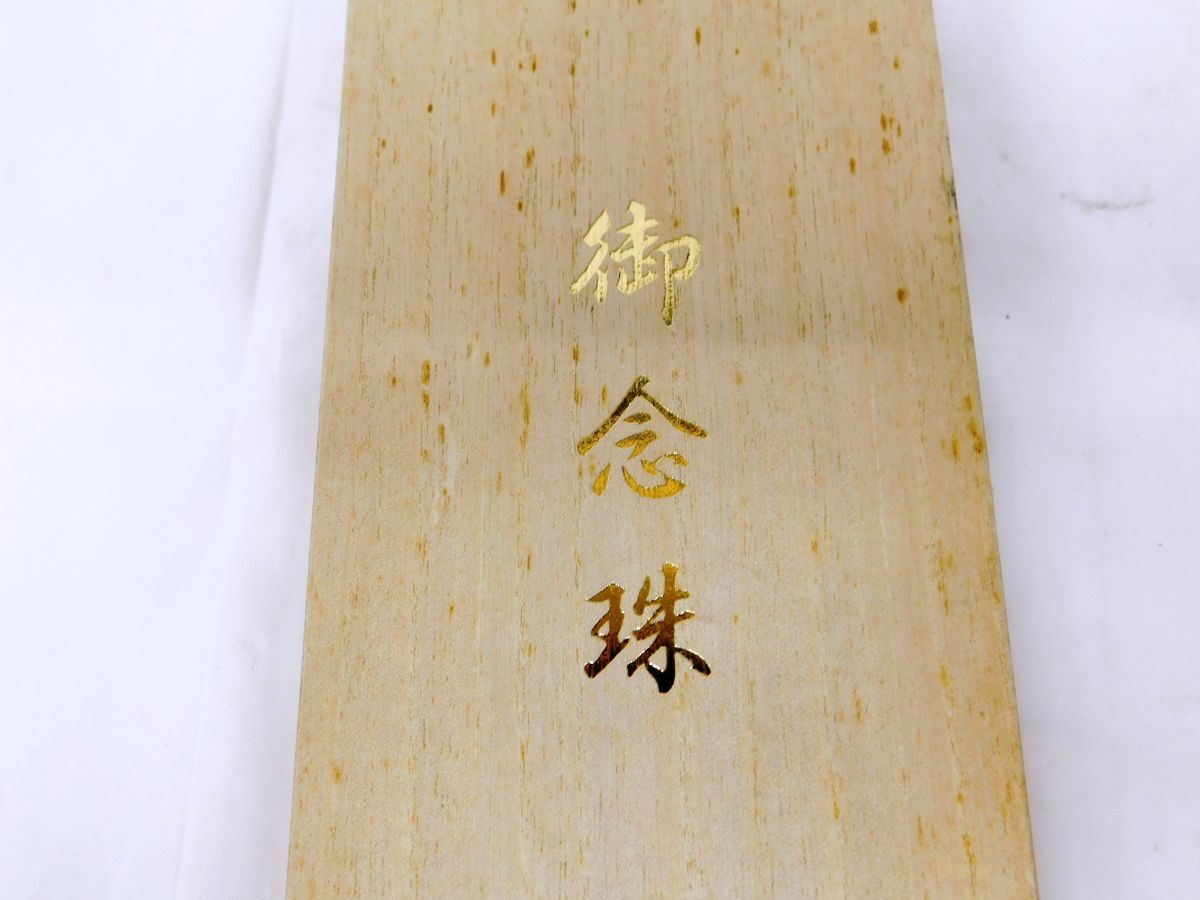 御念珠